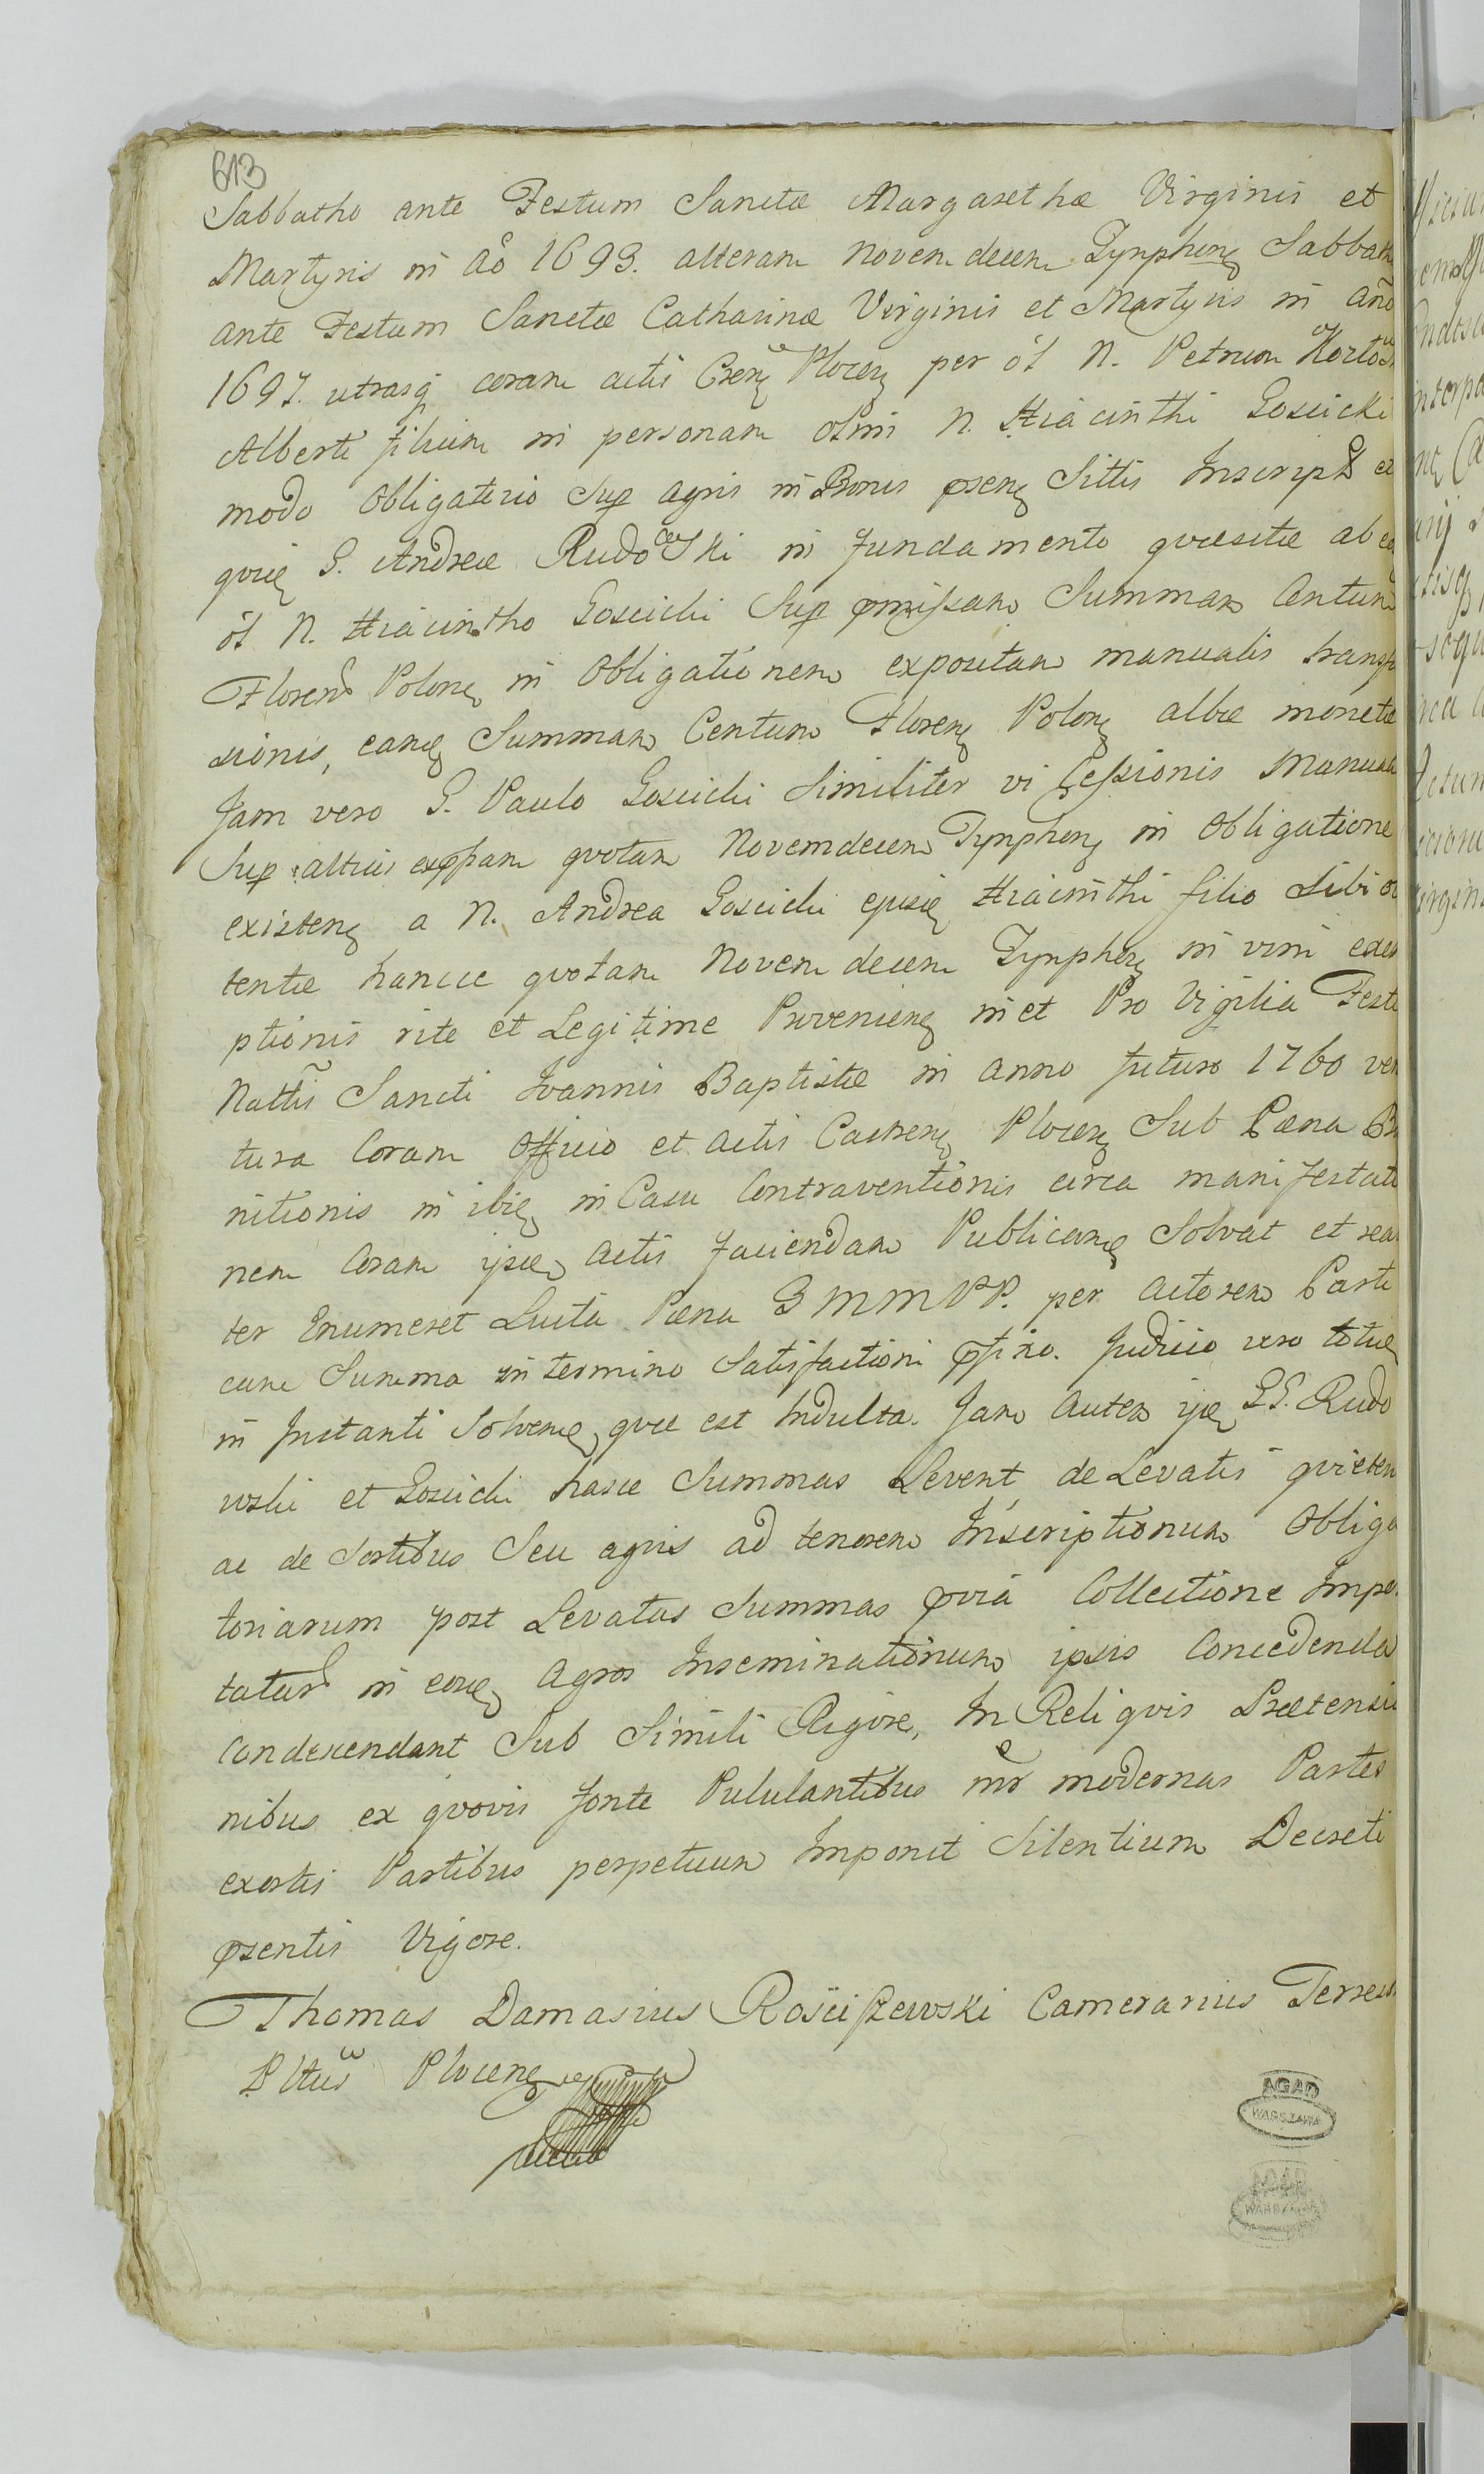 613
Sabbatho ante Festum Sanctæ Margarethæ Virginis et
Martyris in Aō 1693. alteram novem decem Tynphonꝫ Sabbath
ante Festum Sanctæ Catharinæ Virginis et Martyris in anō
1697. utrasqꝫ coram actis Csenꝫ Plocenꝫ per ol N. Petrum
Alberti filium in personam olim N. Hiacinthi Goscicki
modo obligatorio Sup agris in Bonis psenꝫ Sittis Inscript et
qviꝫ G. Andreæ Rudowski in fundamento qvæsitæ ab
ol N. Hiacintho Goscicki Sup pmissam Summam Centum
Floren Polonꝫ in Obligationem expositam manualis transfu
sionis, eanꝫ Summam Centum Florenꝫ Polonꝫ albæ monetæ
Jam vero G. Paulo Goscicki Similiter vi Cessionis Manual
Sup altius expssam qvotam Novemdecem Tynphonꝫ in Obligatione
existenꝫ a N. Andrea Goscicki ejusꝫ Hiacinthi filio Sibi
tentæ hancce qvotam Novem decem Tynphonꝫ in vim
ptionis rite et Legitime Provenienꝫ in et Pro Vigilia Festi
Nattīs Sancti Joannis Baptistæ in anno futuro 1760 ven
tura Coram Officio et Actis Castrenꝫ Plocenꝫ Sub Pæna Ban
nitionis in ibiꝫ in Casu Contraventionis circa manifestatio
nem Coram ipsꝫ Actis faciendam Publicanꝫ Solvat et rea
ter Enumeret Luita Pæna 3 MMPP. per Actorem Parti
cum Summa in termino Satisfactioni pfixo. Judicio vero
in Instanti Solvenꝫ, qvæ est Indulta. Jam Autem ipꝫ GG. Rudo
wski et Goscicki hasce Summas Levent, de Levatis qvieten
ac de Sortibus Seu agris ad tenorem Inscriptionum Obliga
toriarum post Levatas Summas pvia Collectione Impo
tatar in eosꝫ Agros Inseminationum ipsis Concedenda
Condescendant Sub Simili Rigore, In Reliqvis Prætensio
nibus ex qvovis fonte Pululantibus inr modernas Partes
exortis Partibus perpetuum Imponit Silentium Decreti
psentis Vigore.
Thomas Damasius Rościszewski Camerarius Terres
Pltus Plocenꝫ
AGAD
WARSZAWA
AGAD
WARSZAWA